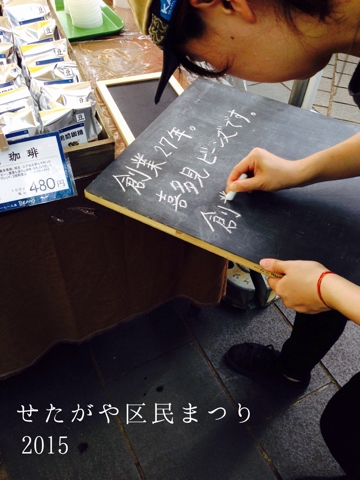 創業27年。
喜多見ビーンズです。
創業
珈琲
480円
せたがや区民まつり
2015